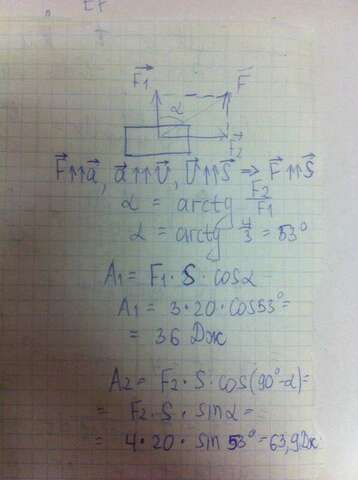 F₁ F
α
F₂
F⃗↑↑a⃗, a⃗↑↑v⃗, v⃗↑↑S⃗ ⇒ F⃗↑↑S⃗
α = arctg F₂/F₁
α = arctg 4/3 = 53°
A₁ = F₁ · S · cosα
A₁ = 3 · 20 · cos53° =
= 36 Дж
A₂ = F₂ · S · cos(90°-α) =
= F₂ · S · sinα =
= 4 · 20 · sin 53° = 63,9 Дж